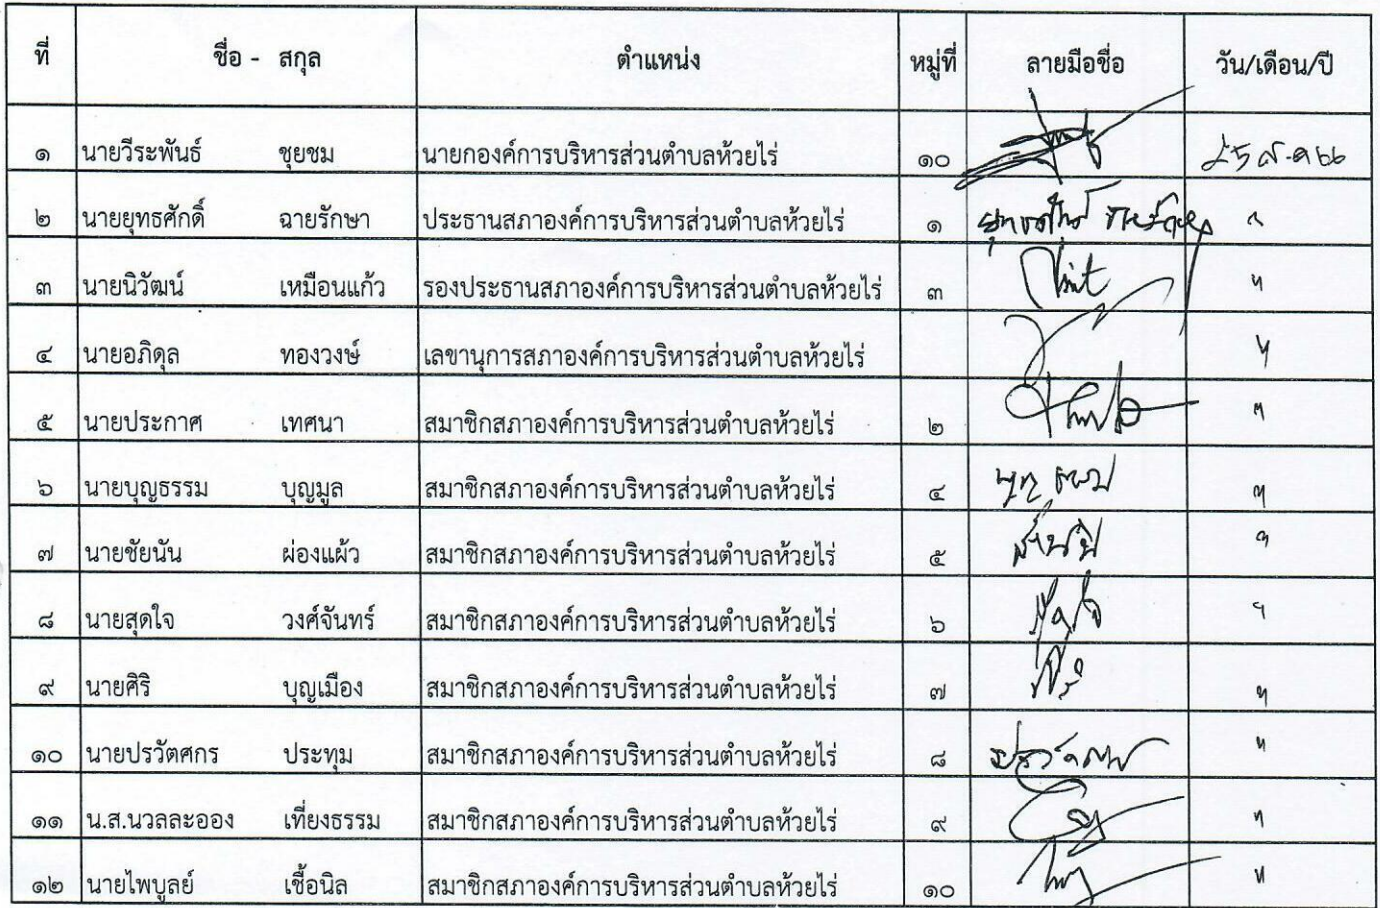 ที่ ชื่อ - สกุล ตำแหน่ง หมู่ที่ ลายมือชื่อ วัน/เดือน/ปี
๑ นายวีระพันธ์ ชุยชม นายกองค์การบริหารส่วนตำบลห้วยไร่ ๑๐
๒ นายยุทธศักดิ์ ฉายรักษา ประธานสภาองค์การบริหารส่วนตำบลห้วยไร่ ๑
๓ นายนิวัฒน์ เหมือนแก้ว รองประธานสภาองค์การบริหารส่วนตำบลห้วยไร่ ๓
๔ นายอภิดุล ทองวงษ์ เลขานุการสภาองค์การบริหารส่วนตำบลห้วยไร่
๕ นายประกาศ เทศนา สมาชิกสภาองค์การบริหารส่วนตำบลห้วยไร่ ๒
๖ นายบุญธรรม บุญมูล สมาชิกสภาองค์การบริหารส่วนตำบลห้วยไร่ ๔
๗ นายชัยนัน ผ่องแผ้ว สมาชิกสภาองค์การบริหารส่วนตำบลห้วยไร่ ๕
๘ นายสุดใจ วงศ์จันทร์ สมาชิกสภาองค์การบริหารส่วนตำบลห้วยไร่ ๖
๙ นายศิริ บุญเมือง สมาชิกสภาองค์การบริหารส่วนตำบลห้วยไร่ ๗
๑๐ นายปรวัตศกร ประทุม สมาชิกสภาองค์การบริหารส่วนตำบลห้วยไร่ ๘
๑๑ น.ส.นวลละออง เที่ยงธรรม สมาชิกสภาองค์การบริหารส่วนตำบลห้วยไร่ ๙
๑๒ นายไพบูลย์ เชื้อนิล สมาชิกสภาองค์การบริหารส่วนตำบลห้วยไร่ ๑๐